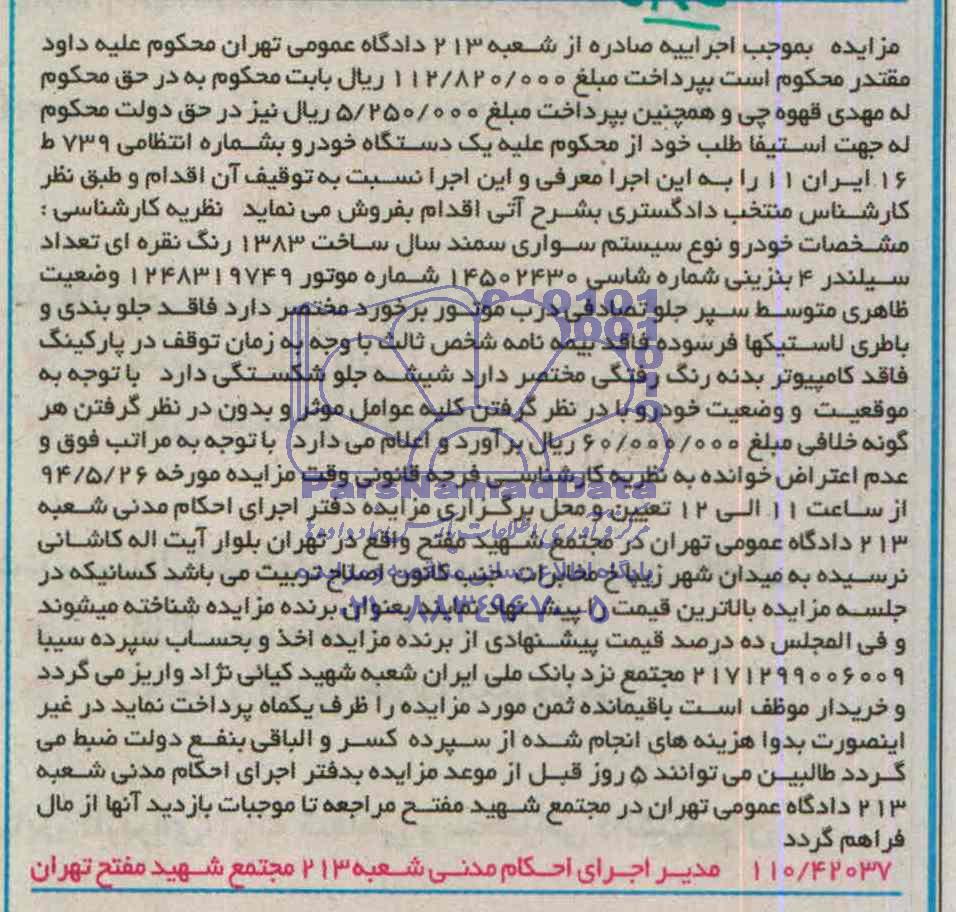 مزایده بموجب اجراییه صادره از شعبه ۲۱۳ دادگاه عمومی تهران محکوم علیه داود
مقتدر محکوم است بپرداخت مبلغ ۱۱۲/۸۲۰/۰۰۰ ریال بابت محکوم به در حق محکوم
له مهدی قهوه چی و همچنین بپرداخت مبلغ ۵/۲۵۰/۰۰۰ ریال نیز در حق دولت محکوم
له جهت استیفا طلب خود از محکوم علیه یک دستگاه خودرو بشماره انتظامی ۷۳۹ ط
۱۶ ایران ۱۱ را به این اجرا معرفی و این اجرا نسبت به توقیف آن اقدام و طبق نظر
کارشناس منتخب دادگستری بشرح آتی اقدام بفروش می نماید نظریه کارشناسی :
مشخصات خودرو نوع سیستم سواری سمند سال ساخت ۱۳۸۳ رنگ نقره ای تعداد
سیلندر ۴ بنزینی شماره شاسی ۱۴۵۰۲۴۳۰ شماره موتور ۱۲۴۸۳۱۹۷۴۹ وضعیت
ظاهری متوسط سپر جلو تصادفی درب موتور برخورد مختصر دارد فاقد جلو بندی و
باطری لاستیکها فرسوده فاقد بیمه نامه شخص ثالث با وجه به زمان توقف در پارکینگ
فاقد کامپیوتر بدنه رنگ رفتگی مختصر دارد شیشه جلو شکستگی دارد با توجه به
موقعیت و وضعیت خودرو با در نظر گرفتن کلیه عوامل موثر و بدون در نظر گرفتن هر
گونه خلافی مبلغ ۶۰/۰۰۰/۰۰۰ ریال برآورد و اعلام می دارد با توجه به مراتب فوق و
عدم اعتراض خوانده به نظریه کارشناسی فرجه قانونی وقت مزایده مورخه ۹۴/۵/۲۶
ParsNamadData
از ساعت ۱۱ الی ۱۲ تعیین و محل برگزاری مزایده دفتر اجرای احکام مدنی شعبه
۲۱۳ دادگاه عمومی تهران در مجتمع شهید مفتح واقع در تهران بلوار آیت اله کاشانی
نرسیده به میدان شهر زیبا خ مخابرات جنب کانون اصلاح تربیت می باشد کسانیکه در
جلسه مزایده بالاترین قیمت را پیشنهاد نمایند بعنوان برنده مزایده شناخته میشوند
۰۲۱-۸۸۳۴۹۶۷۰-۵
و فی المجلس ده درصد قیمت پیشنهادی از برنده مزایده اخذ و بحساب سپرده سیبا
۲۱۷۱۲۹۹۰۰۶۰۰۹ مجتمع نزد بانک ملی ایران شعبه شهید کیائی نژاد واریز می گردد
و خریدار موظف است باقیمانده ثمن مورد مزایده را ظرف یکماه پرداخت نماید در غیر
اینصورت بدوا هزینه های انجام شده از سپرده کسر و الباقی بنفع دولت ضبط می
گردد طالبین می توانند ۵ روز قبل از موعد مزایده بدفتر اجرای احکام مدنی شعبه
۲۱۳ دادگاه عمومی تهران در مجتمع شهید مفتح مراجعه تا موجبات بازدید آنها از مال
فراهم گردد
۱۱۰/۴۲۰۳۷ مدیر اجرای احکام مدنی شعبه ۲۱۳ مجتمع شهید مفتح تهران